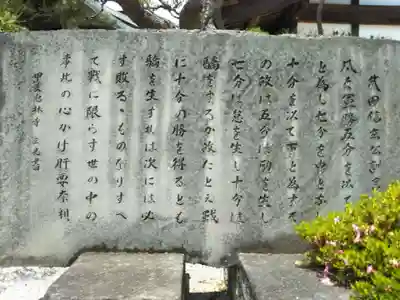 武田信玄公訓言
凡そ軍勝五分を以て上
と為し七分を中とな
十分を以て下と為す
の故は五分は励を生し
七分は怠を生し十分は
驕を生するか故たとへ戦
に十分の勝を得るとも
驕を生すれは次には必
す敗るゝものなりすへ
て戦に限らす世の中の
事此の心かけ肝要奈利
甲斐恵林寺